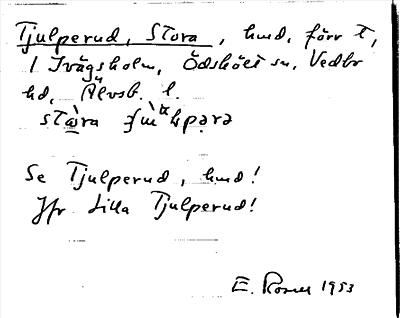 Tjulperud, Stora, hmd. förr t,
1 Ivägsholm, Ödskölt sn, Vedbo
hd, Älvsb. l.
Se Tjulperud, hmd!
Jfr Lilla Tjulperud!
E. Rosell 1953